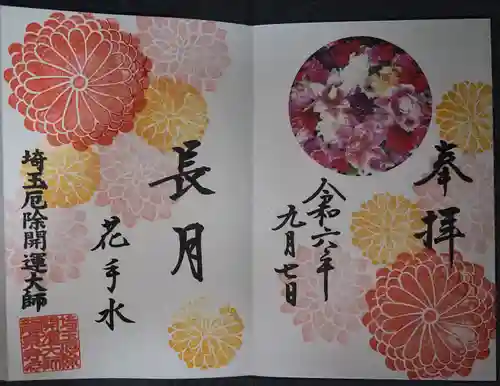 奉拝
令和六年
九月七日
長月
花手水
埼玉厄除開運大師